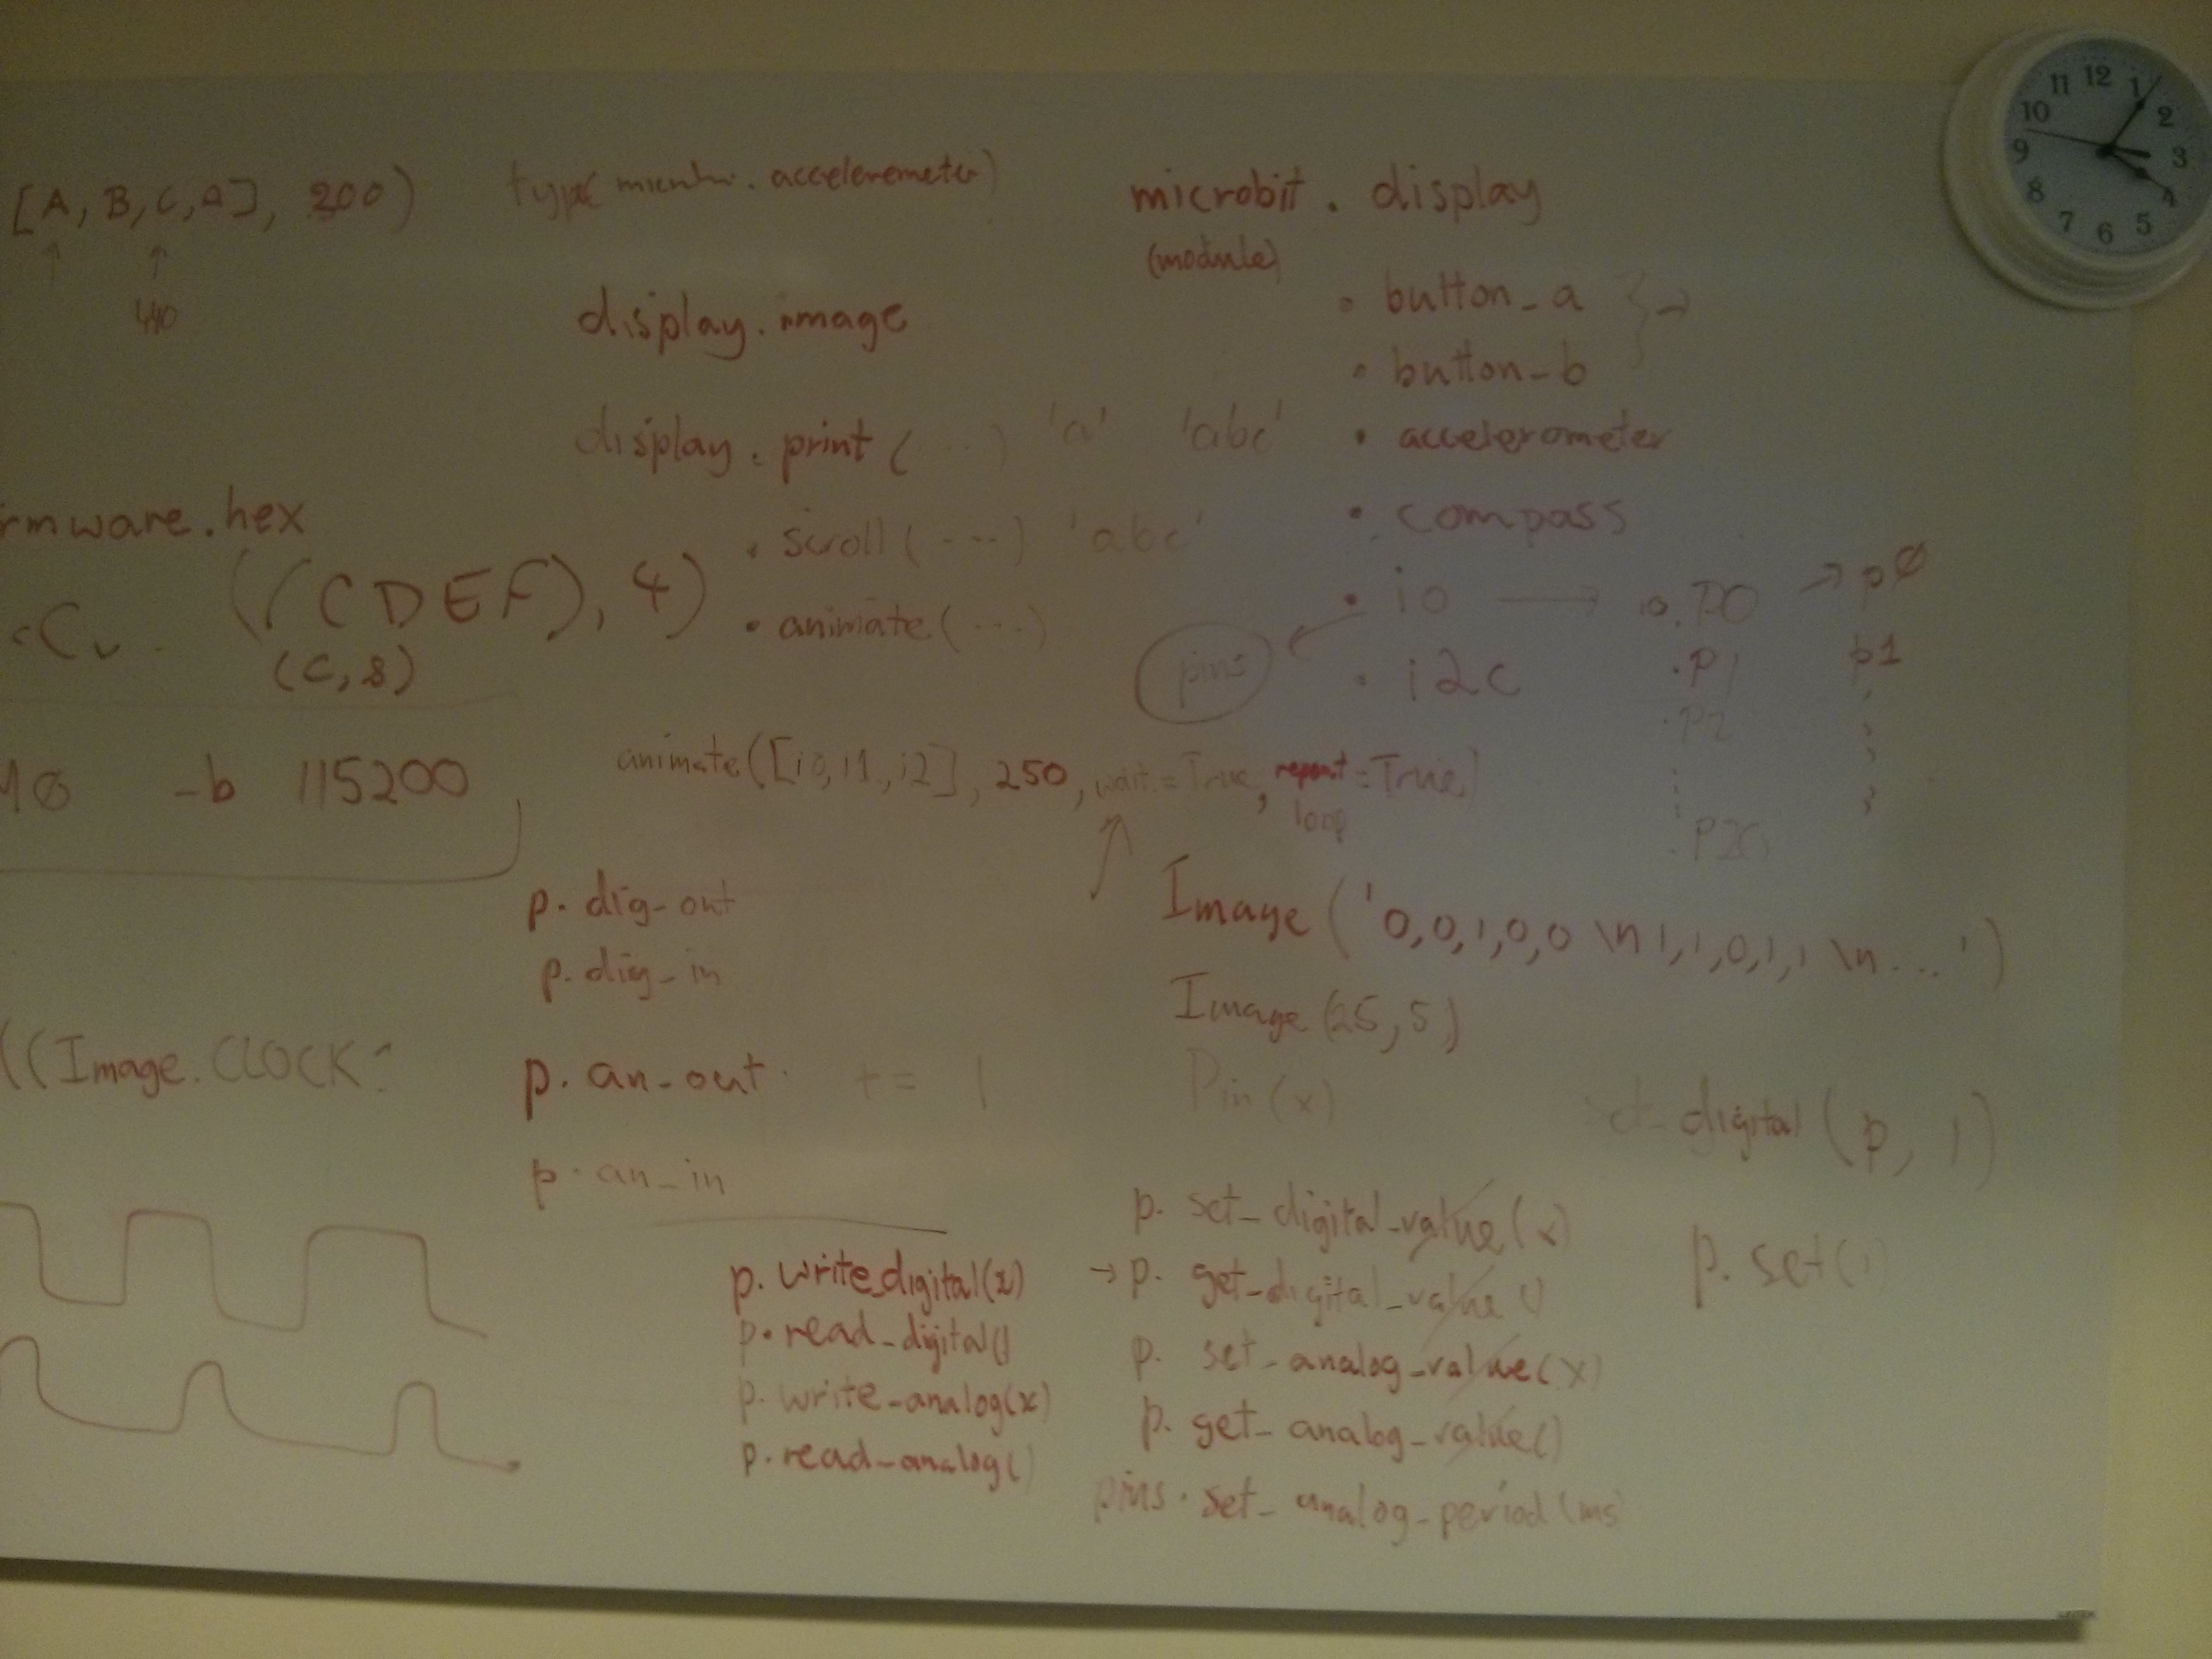 [A, B, C, A], 200)
440
type( . accelerometer)
microbit . display
(module)
• button_a
• button_b
• accelerometer
• compass
• io → io.P0 → p0
pins
.P1 p1
• i2c
.P2
.P20
display.image
display.print (...) 'a' 'abc'
. scroll (---) 'abc'
• animate (...)
rmware.hex
((CDEF), 4)
(C, 8)
-b 115200
animate([i0, i1, i2], 250, wait=True, repeat=True)
loop
p. dig_out
p. dig_in
p. an_out += 1
p. an_in
Image ('0,0,1,0,0 \n 1,1,0,1,1 \n ... ')
Image (25, 5)
Pin (x)
((Image.CLOCK
digital (p, 1)
p. write_digital(x)
p. read_digital()
p. write_analog(x)
p. read_analog()
p. set_digital_value (x)
→ p. get_digital_value ()
p. set_analog_value (x)
p. get_analog_value ()
pins. set_analog_period (ms
p. set(
12
1
2
3
4
5
6
7
8
9
10
11